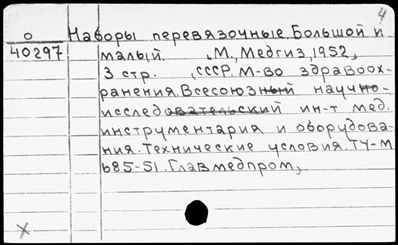 4
О Наборы перевязочные Большой и
40297 малый. , М., Медгиз, 1952,
3 стр. , СССР. М-во здравоох-
ранения. Всесоюзный научно-
исследовательский ин-т мед.
инструментария и оборудова-
ния. Технические условия. ТУ-М
685-51. Главмедпром,
X